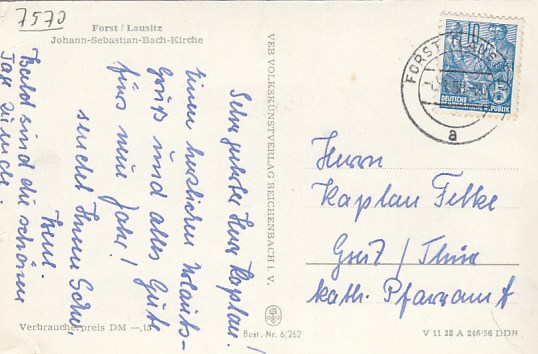 7570
Forst / Lausitz
Johann-Sebastian-Bach-Kirche
Sehr geehrter Herr Kaplan!
Einen herzlichen Urlaubs-
gruß und alles Gute
fürs neue Jahr!
sendet Ihnen
Irene.
Bald sind die schönen
Tage zu Ende.
Verbraucherpreis DM —,15
VEB VOLKSKUNSTVERLAG REICHENBACH i. V.
Best. Nr. 6/262
FORST (LAUSITZ)
a
10
5
DEUTSCHE
DEMOKRATISCHE
REPUBLIK
Herrn
Kaplan Felke
Greiz / Thür.
kath. Pfarramt
V 11 28 A 246/56 DDR